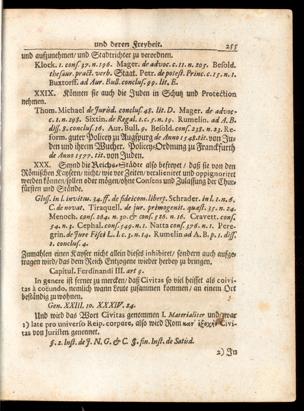 und deren Freyheit. 255
und auffzunehmen/ und Stadtrichter zu verordnen.
Klock. 1. conf. 37. n. 196. Mager. de advoc. c. 11. n. 205. Besold.
thesaur. pract. verb. Staat. Petr. de potest. Princ. c. 15. n. 1.
Buxtorff. ad Aur. Bull. conclus. 99. lit. E.
XXIX. Können sie auch die Juden in Schutz und Protection
nehmen.
Thom. Michael de Jurisd. conclus. 48. lit. D. Mager. de advoc-
c. 1. n. 298. Sixtin. de Regal. l. c. 5. n. 19. Rumelin. ad A. B.
diss. 8. conclus. 16. Aur. Bull. 9. Besold. cons. 238. n. 23. Re-
form. guter Policey zu Augspurg de Anno 1548. tit. von Ju-
den und ihrem Wucher. Policey-Ordnung zu Franckfurth
de Anno 1577. tit. von Juden.
XXX. Seynd die Reichs-Städte also befreyet / daß sie von den
Römischen Kaysern/ nicht/ wie vor Zeiten/ veralienirt und oppignorirt
werden können/ sollen oder mögen/ohne Consens und Zulassung der Chur-
fürsten und Stände.
Gloss. in l. invitus. 34. ff. de fideicom. libert. Schrader. in l. 1. n. 6.
C. de novat. Tiraquell. de jur. primogenit. quæst. 35. n. 24.
Menoch. cons. 284. n. 30. & cons. 526. n. 16. Cravett. cons.
54. n. 3. Cephal. cons. 549. n. 1. Natta cons. 576. n. 1. Pere-
grin. de Jure Fisci L. l. c. 3. n. 14. Rumelin ad A. B. p. 1. diss.
1. conclus. 4.
Zumahlen einen Kayser nicht allein dieses inhibiret/ sondern auch aufge-
tragen wird/ das dem Reich Entzogene wieder herbey zu bringen.
Capitul. Ferdinandi III. art 9.
In genere ist ferner zu mercken/ daß Civitas so viel heisset als coivi-
tas à coëundo, nemlich wann Leute zusammen kommen/ an einem Ort
beständig zu wohnen.
Gen. XXIII. 10. XXXIV. 24.
Und wird das Wort Civitas genommen I. Materialiter und zwar
1) late pro universo Reip. corpore, also wird Rom κατ' ἐξοχὴν Civi-
tas von Juristen genennet.
§. 2. Inst. de J. N. G. & C. §. fin. Inst. de Satisd.
2) In